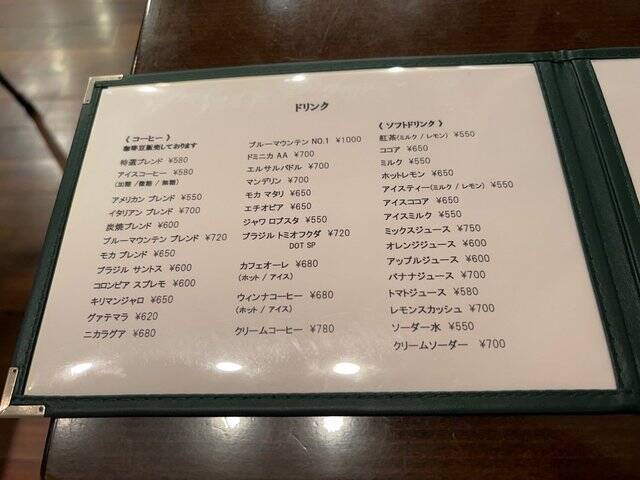 ドリンク
《 コーヒー 》
珈琲豆販売しております
特選ブレンド ¥580
アイスコーヒー ¥580
(加糖 / 微糖 / 無糖)
アメリカン ブレンド ¥550
イタリアン ブレンド ¥700
炭焼ブレンド ¥600
ブルーマウンテン ブレンド ¥720
モカ ブレンド ¥650
ブラジル サントス ¥600
コロンビア スプレモ ¥600
キリマンジャロ ¥650
グァテマラ ¥620
ニカラグア ¥680
ブルーマウンテン NO.1 ¥1000
ドミニカ AA ¥700
エルサルバドル ¥700
マンデリン ¥700
モカ マタリ ¥650
エチオピア ¥650
ジャワ ロブスタ ¥550
ブラジル トミオフクダ ¥720
DOT SP
カフェオーレ ¥680
(ホット / アイス)
ウィンナコーヒー ¥680
(ホット / アイス)
クリームコーヒー ¥780
《 ソフトドリンク 》
紅茶(ミルク / レモン) ¥550
ココア ¥650
ミルク ¥550
ホットレモン ¥650
アイスティー(ミルク / レモン) ¥550
アイスココア ¥650
アイスミルク ¥550
ミックスジュース ¥750
オレンジジュース ¥600
アップルジュース ¥600
バナナジュース ¥700
トマトジュース ¥580
レモンスカッシュ ¥700
ソーダー水 ¥550
クリームソーダー ¥700